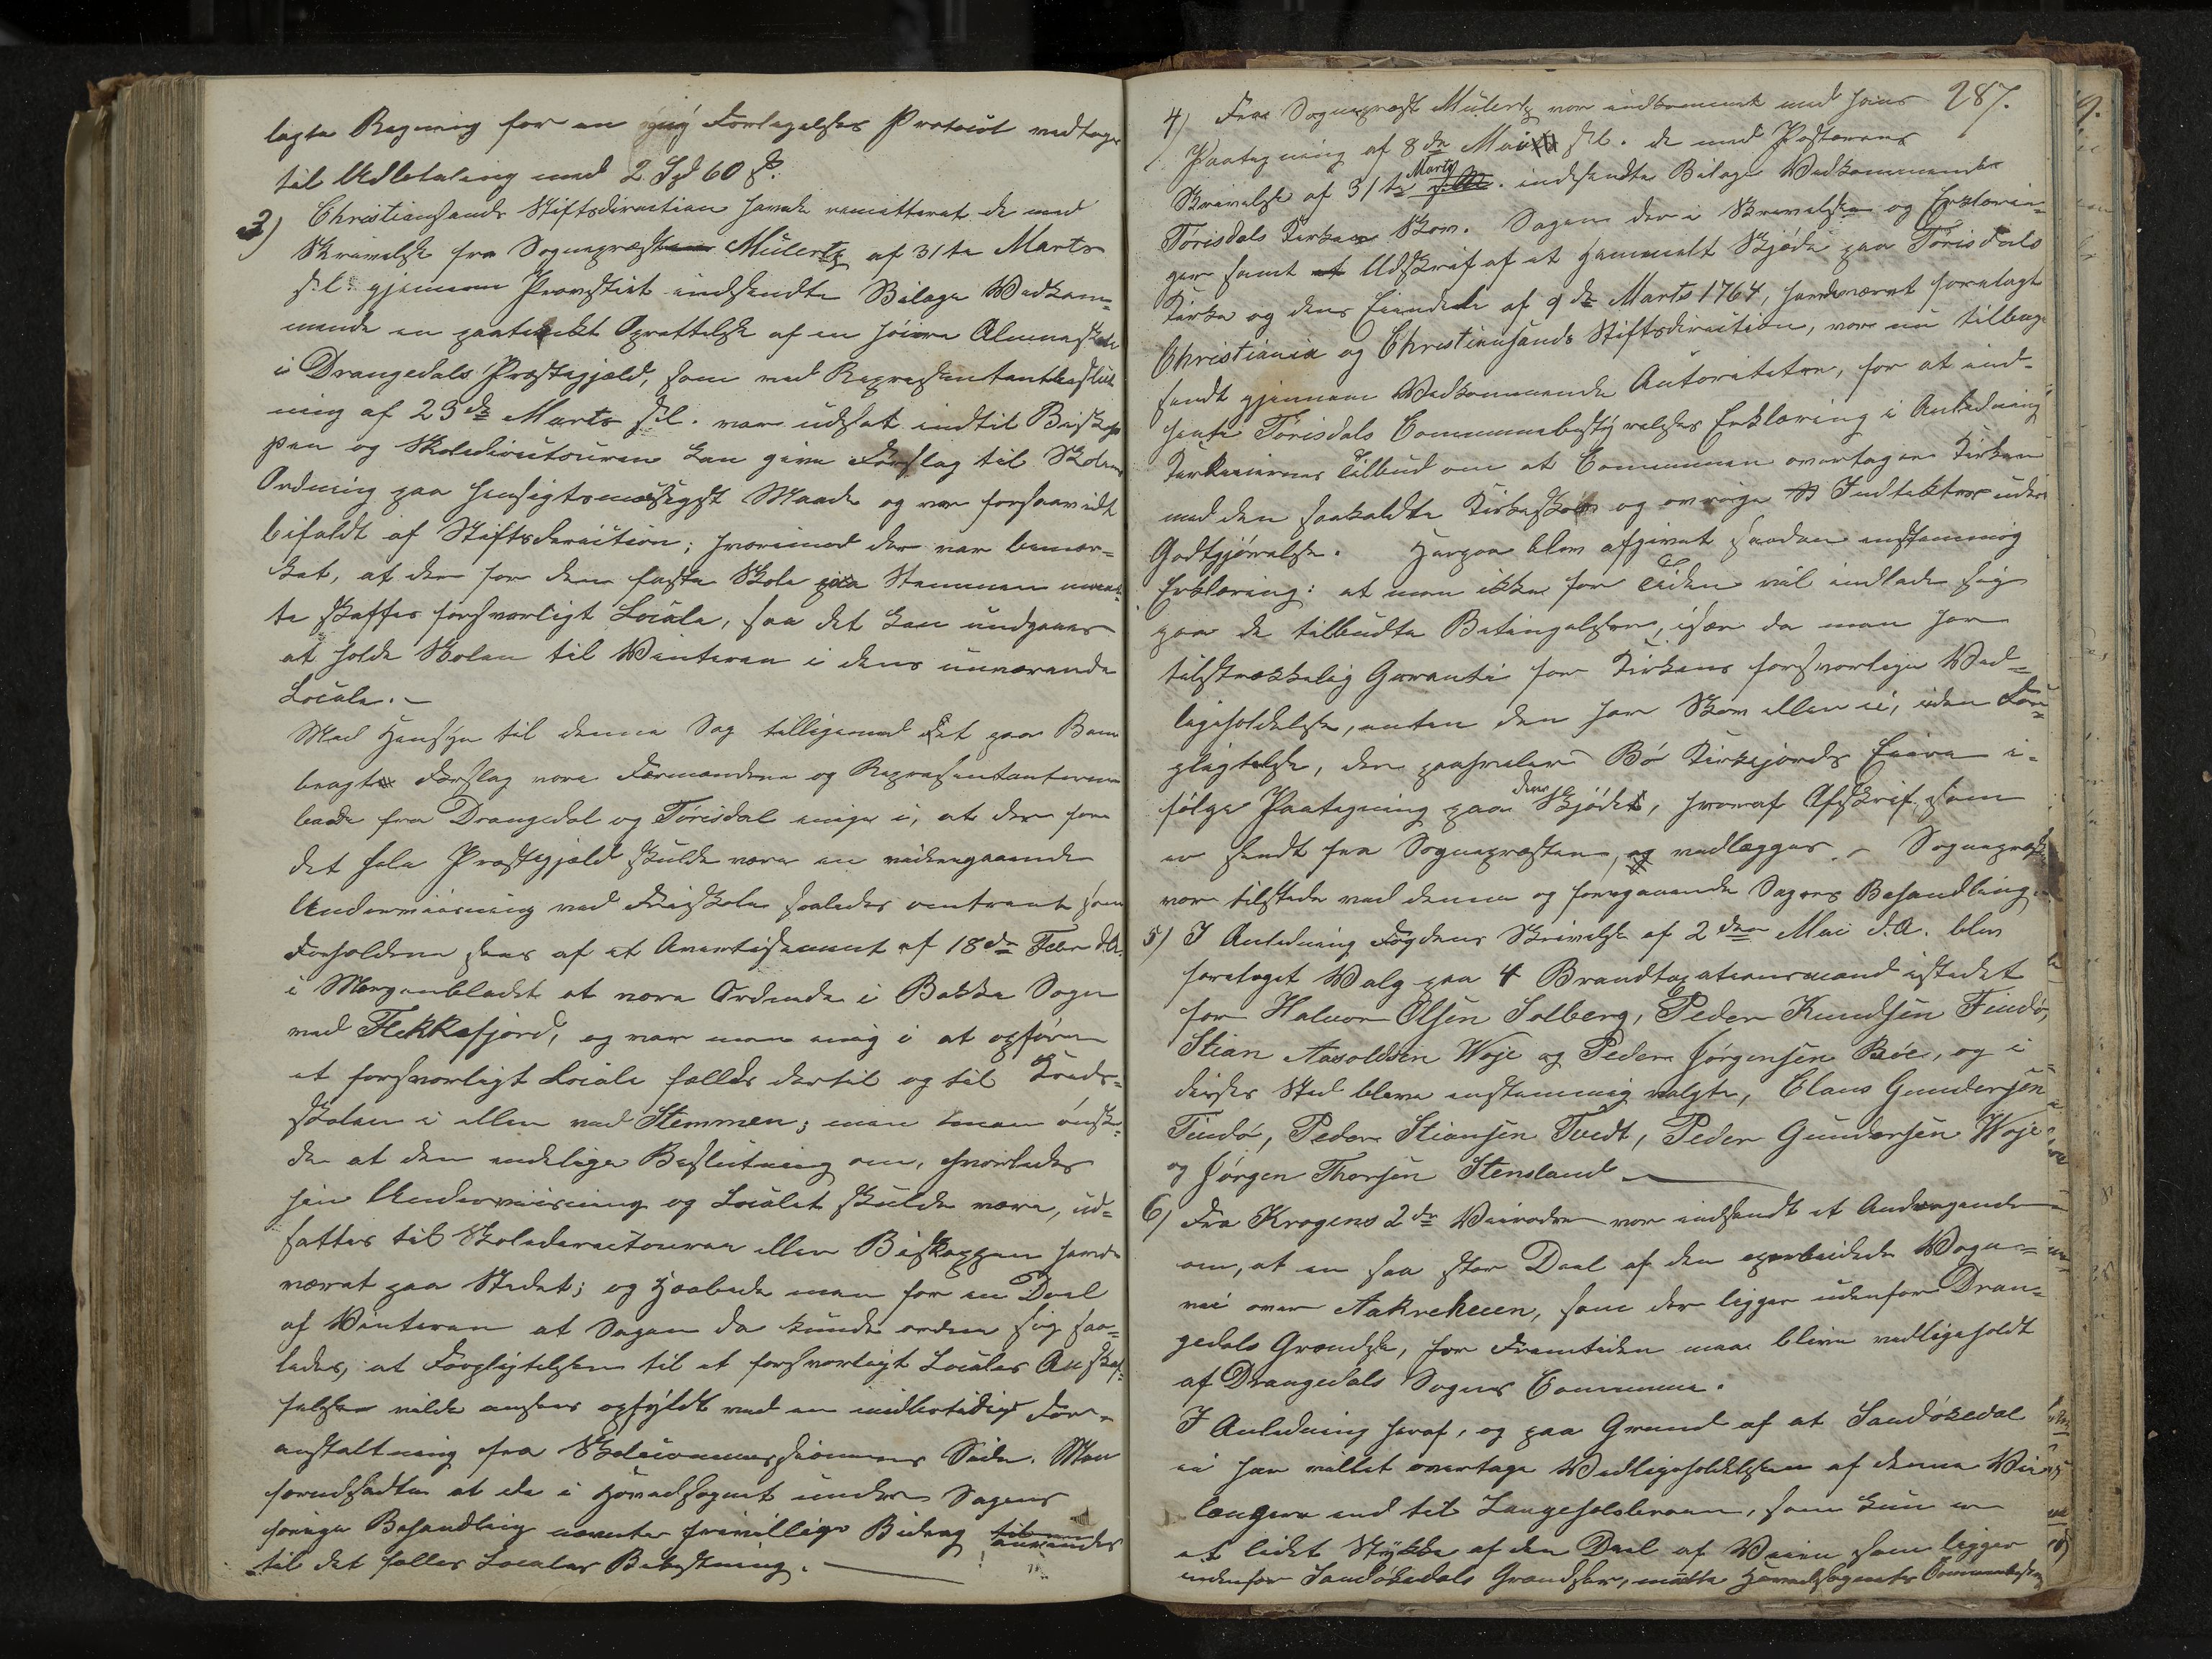 lagte Regning for en ny Forlegelses Protocol vedtages
til Udbetaling med 2 Spd 60 ß.
3) Christiansands Stiftsdirection havde remitteret de med
Skrivelse fra Sognepræst Mülertz af 31te Marts
sl. gjennem Provstiet indsendte Bilage Vedkom-
mende en paatænkt Oprettelse af en høiere Almueskole
i Drangedals Præstegjæld, som ved Repræsentantbeslut-
ning af 23de Marts sl. var udsat indtil Biskop-
pen og Skoledirecteuren kan give Forslag til Skolens
Ordning paa hensigtsmæssigst Maade og var forsaavidt
bifaldt af Stiftsdirection; hvorimod der var bemær-
ket, at der for den faste Skole paa Stemmen maat-
te skaffes forsvarligt Locale, saa det kan undgaaes
at holde Skolen til Vinteren i dens nuværende
Locale. –
Med Hensyn til denne Sag tilligemed det paa Bane
bragte Forslag vare Formændene og Repræsentanterne
baade fra Drangedal og Tørisdal enige i, at der for
det hele Præstegjæld skulde være en videregaaende
Underviisning ved Friskole saaledes omtrent som
Forholdene sees af et Avertissement af 18de Febr d.A.
i Morgenbladet at være Ordnede i Bakke Sogn
ved Flekkefjord, og var man enig i at opføre
et forsvarligt Locale fælles dertil og til Kreds-
skolen i eller ved Stemmen; men man ønske-
de at den endelige Beslutning om, hvorledes
hin Underviisning og Localet skulde være, ud-
sattes til Skoledirecteuren eller Biskoppen havde
været paa Stedet; og Haabede man for en Deel
af Vinteren at Sagen da kunde ordne sig saa-
ledes, at Forpligtelsen til et forsvarligt Locales Anskaf-
felse vilde ansees opfyldt ved en midlertidig For-
anstaltning fra Skolecommissionens Side. Man
forudsadte at de i Hovedsognet under Sagens
forrige Behandling nævnte frivillige Bidrag anvendes
til det fælles Locales Bekostning. –
287.
4) Fra Sognepræst Mülertz var indkommet med hans
Paategning af 8de Mai sl. de med Pastorens
Skrivelse af 31te Marts indsendte Bilage Vedkommende
Tørisdals Kirkes Skov. Sagen der i Skrivelsen og Erklærin-
ger samt Udskrift af et gammelt Skjøde paa Tørisdals
Kirke og dens Eiendele af 9de Marts 1764, havde været forelagt
Christiania og Christiansands Stiftsdirection, var nu tilbage
sendt gjennem Vedkommende Autoriteter, for at ind-
hente Tørisdals Communebestyrelses Erklæring i Anledning
Kirkeeiernes Tilbud om at Communen overtager Kirken
med den saakaldte Kirkeskov og øvrige Indtækter uden
Godtgjørelse. Herpaa blev afgivet saadan enstemmig
Erklæring: at man ikke for Tiden vil indlade sig
paa de tilbudte Betingelser, især da man har
tilstrækkelig Garanti for Kirkens forsvarlige Ved-
ligeholdelse, enten den har Skov eller ei, i den For-
pligtelse, der paahviler Bø Kirkejords Eiere i-
følge Paategning paa dens Skjøde, hvoraf Afskrift, som
er sendt fra Sognepræsten, vedlægges. – Sognepræsten
var tilstede ved denne og foregaaende Sagers Behandling.
5) I Anledning Fogdens Skrivelse af 2den Mai d.A. blev
foretaget Valg paa 4 Brandtaxationsmænd istedet
for Halvor Olsen Solberg, Peder Knudsen Findø,
Stian Aasoldsen Woje og Peder Jørgensen Bøe, og i
disses Sted bleve enstemmig valgte, Claus Gundersen
Findø, Peder Stiansen Tvedt, Peder Gundersen Woje
og Jørgen Thorsen Stensland –
6) Fra Krogens 2de Veirode var indsendt et Andragende
om, at en saa stor Deel af den oparbeidede Vogn-
vei over Aakreheien, som der ligger udenfor Dran-
gedals Grændse, for Fremtiden maa blive vedligeholdt
af Drangedals Sogns Commune.
I Anledning heraf, og paa Grund af at Sandøkedal
ei har villet overtage Vedligeholdelsen af denne Vei
længere end til Langeholsleraen, som kun er
et lidet Stykke af den Deel af Veien som ligger
indenfor Sandøkedals Grændser, maatte Hovedsognets